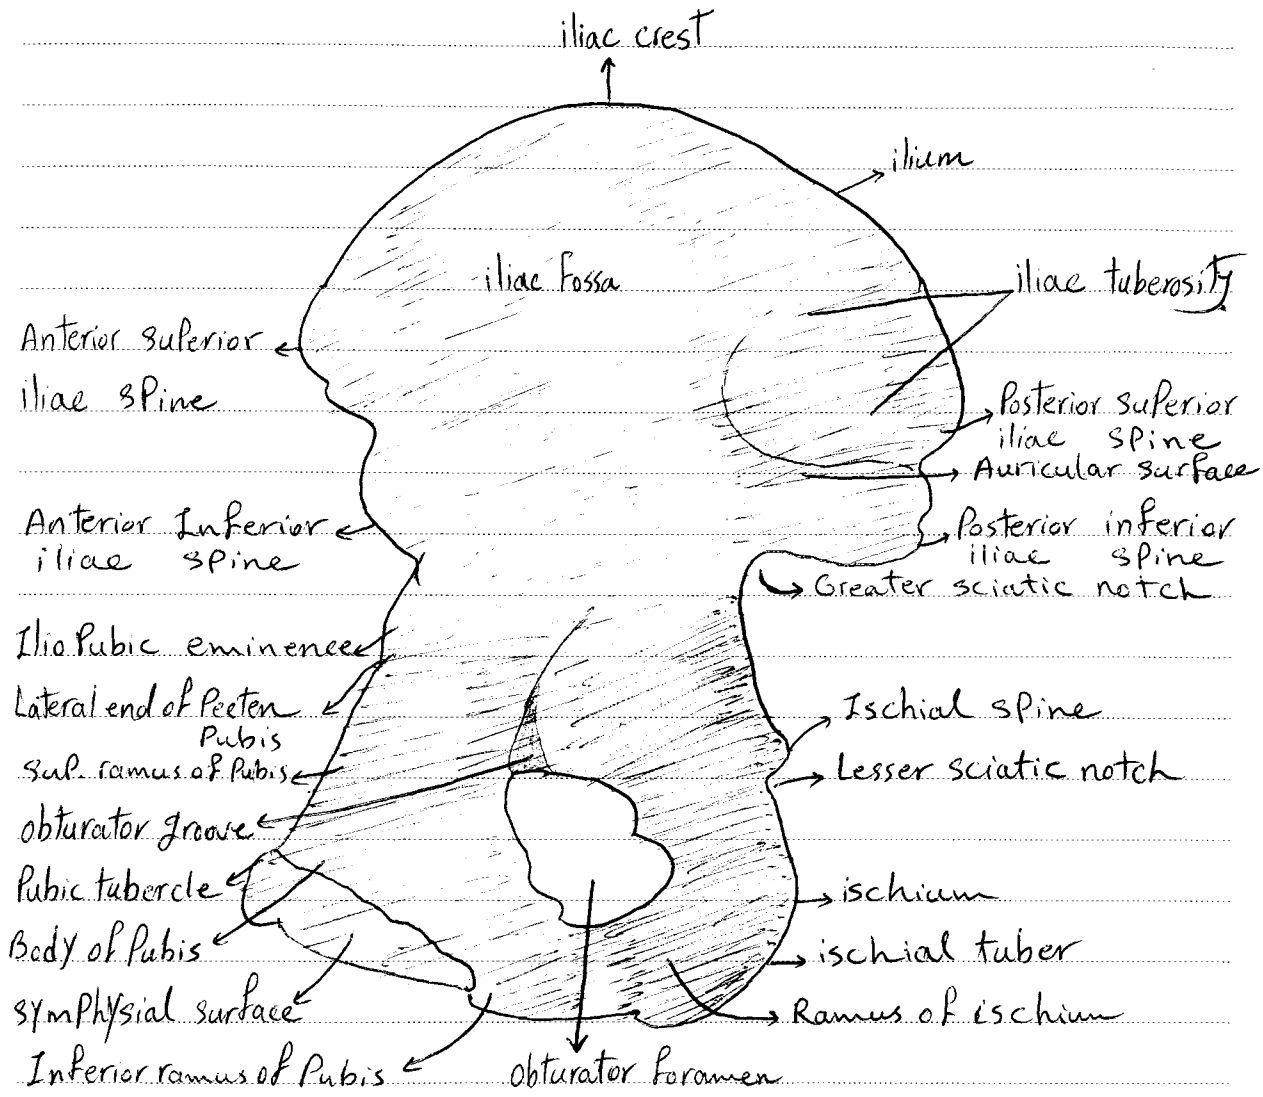 iliac crest
ilium
iliac fossa
iliac tuberosity
Anterior superior
iliac spine
Posterior superior
iliac spine
Auricular surface
Anterior Inferior
iliac spine
Posterior inferior
iliac spine
Greater sciatic notch
Ilio Pubic eminence
Lateral end of Pecten
Pubis
Ischial spine
sup. ramus of Pubis
Lesser sciatic notch
obturator groove
Pubic tubercle
ischium
Body of Pubis
ischial tuber
symphysial surface
Ramus of ischium
Inferior ramus of Pubis
obturator foramen